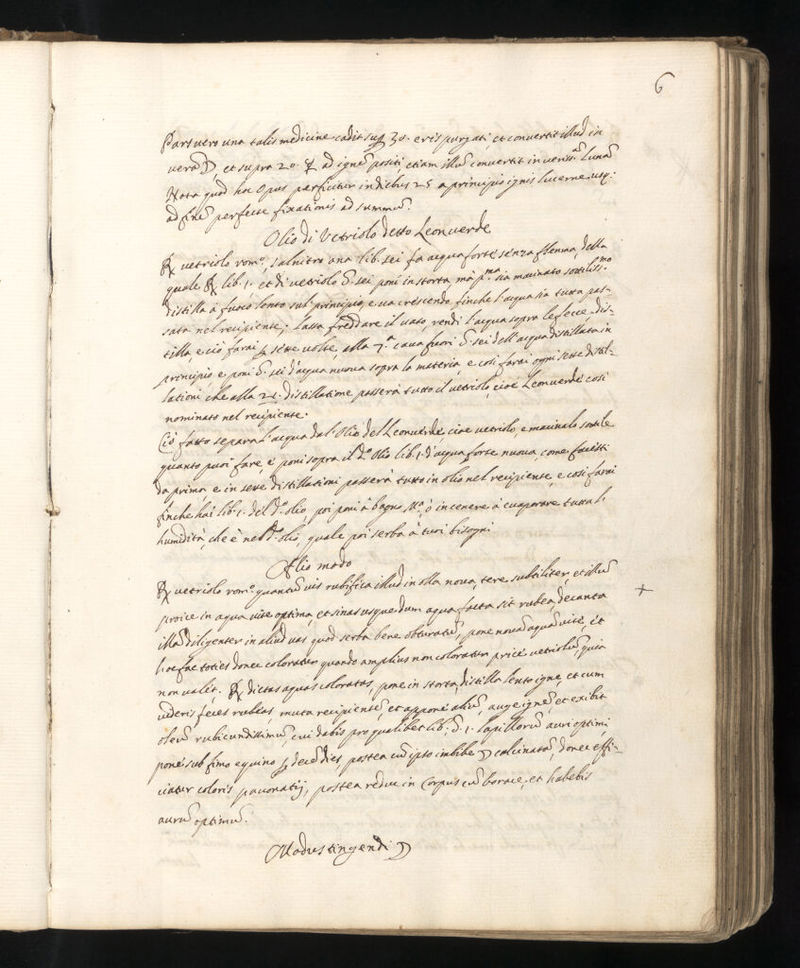 6
Pars vero una talis medicine cadit sup. 30. eris purgati, et convertit illud in
verā ☽, et supra 20. ☿ ad ignē positi etiam illū convertit in veriss.ᵃᵐ Lunā
Nota quod hoc Opus perficitur in diebus 25 a principio ignis lucerne usq:
ad finē perfecte fixationis ad summū.
Olio di Vetriolo detto Leon verde
℞ vetriolo rom.º, salnitro ana lib. sei fa acqua forte senza flemma, della
quale ℞ lib. 1. et di vetriolo ℥. sei poni in storta, mà p.ᵐᵃ sia macinato sottiliss.ᵐᵒ
distilla à fuoco lento sul principio, e va crescendo finche l'acqua sia tutta pas-
sata nel recipiente; lassa freddare il vaso, rendi l'acqua sopra le fecce, dis-
tilla, e ciò farai p sette volte, alla 7.ᵃ cava fuori ℥. sei dell'acqua distillata in
principio e poni ℥. sei d'acqua nuova sopra la materia, e cosi farai ogni sette distil-
lationi, che alla 21. distillatione passerà tutto il vetriolo, cioè Leon verde cosi
nominato nel recipiente.
Ciò fatto separa l'acqua dal Olio del Leon verde, cioe vetriolo, e macinalo sottile
quanto puoi fare, e poni sopra il d.º Olio lib. 1. d'acqua forte nuova come facesti
da prima, e in sette distillationi passerà tutto in olio nel recipiente, e cosi farai
finche hai lib. 1. del d.º olio, poi poni à bagno M.ᵃ ò in cenere à evaporare tutta l'
humidità, che è nel d.º olio, quale poi serba à tuoi bisogni
Alio modo
℞ vetriolo rom.º quantū vis rubifica illud in olla nova, tere subtiliter, et illū
proice in aqua vite optima, et sinas usque dum aqua facta sit rubea, decanta
illā diligenter in aliud vas quod serba bene obturatū, pone novā aquā vite, et
hoc fac toties donec coloratur quando amplius non coloratur proice vetriolū, quia
non valet. ℞ dictas aquas coloratas, pone in storta, distilla lento igne, et cum
videris feces rubeas, muta recipientē, et appone aliū, auge ignē et exibit
oleū rubicundissimū, cui dabis pro qualibet lib. ℥. 1. lapillorū auri optimi
pone sub fimo equino p decē dies, postea cū ipso imbibe ☽ calcinatā, donec effi-
ciatur coloris pavonatij, postea reduc in Corpus cū borace, et habebis
aurū optimū.
+
Modus tingendi ☽